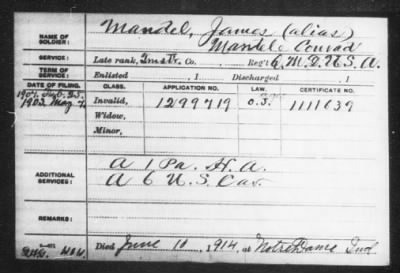 NAME OF SOLDIER: Mandel, James (alias)
Mandel Conrad
SERVICE: Late rank, Co. Reg't 6 M. D. U.S.A.
TERM OF SERVICE: Enlisted , 1 Discharged , 1
DATE OF FILING. CLASS. APPLICATION NO. LAW. CERTIFICATE NO.
1902 May 7, Invalid, 1299719 1111639
Widow,
Minor,
ADDITIONAL SERVICES: A 1 Pa. H.A.
A 6 U.S. Cav.
REMARKS:
Died June 10, 1914, at Notre Dame Ind.